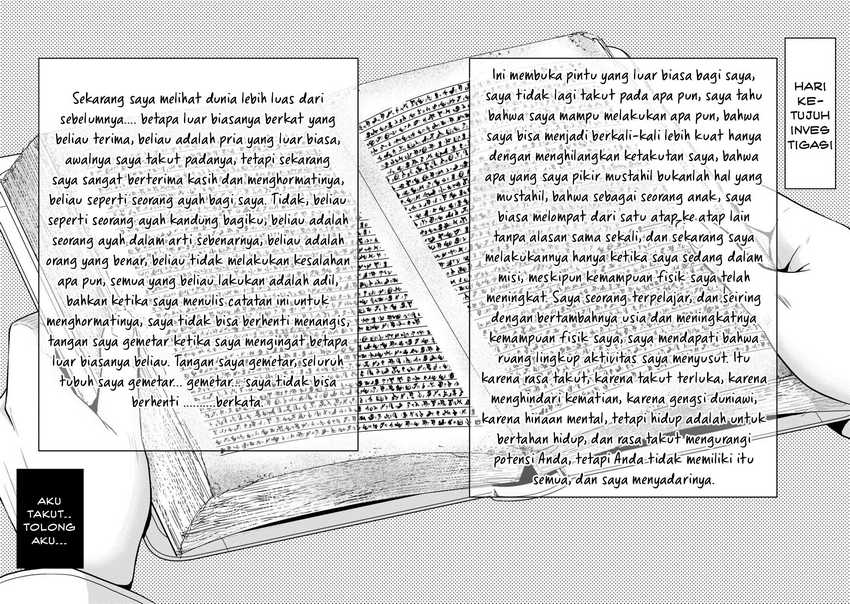 HARI
KE-
TUJUH
INVES
TIGASI
Ini membuka pintu yang luar biasa bagi saya,
saya tidak lagi takut pada apa pun, saya tahu
bahwa saya mampu melakukan apa pun, bahwa
saya bisa menjadi berkali-kali lebih kuat hanya
dengan menghilangkan ketakutan saya, bahwa
apa yang saya pikir mustahil bukanlah hal yang
mustahil, bahwa sebagai seorang anak, saya
biasa melompat dari satu atap ke atap lain
tanpa alasan sama sekali, dan sekarang saya
melakukannya hanya ketika saya sedang dalam
misi, meskipun kemampuan fisik saya telah
meningkat. Saya seorang terpelajar, dan seiring
dengan bertambahnya usia dan meningkatnya
kemampuan fisik saya, saya mendapati bahwa
ruang lingkup aktivitas saya menyusut. Itu
karena rasa takut, karena takut terluka, karena
menghindari kematian, karena gengsi duniawi,
karena hinaan mental, tetapi hidup adalah untuk
bertahan hidup, dan rasa takut mengurangi
potensi Anda, tetapi Anda tidak memiliki itu
semua, dan saya menyadarinya.
Sekarang saya melihat dunia lebih luas dari
sebelumnya.... betapa luar biasanya berkat yang
beliau terima, beliau adalah pria yang luar biasa,
awalnya saya takut padanya, tetapi sekarang
saya sangat berterima kasih dan menghormatinya,
beliau seperti seorang ayah bagi saya. Tidak, beliau
seperti seorang ayah kandung bagiku, beliau adalah
seorang ayah dalam arti sebenarnya, beliau adalah
orang yang benar, beliau tidak melakukan kesalahan
apa pun, semua yang beliau lakukan adalah adil,
bahkan ketika saya menulis catatan ini untuk
menghormatinya, saya tidak bisa berhenti menangis,
tangan saya gemetar ketika saya mengingat betapa
luar biasanya beliau. Tangan saya gemetar, seluruh
tubuh saya gemetar... gemetar... saya tidak bisa
berhenti ..........berkata.
AKU
TAKUT..
TOLONG
AKU...